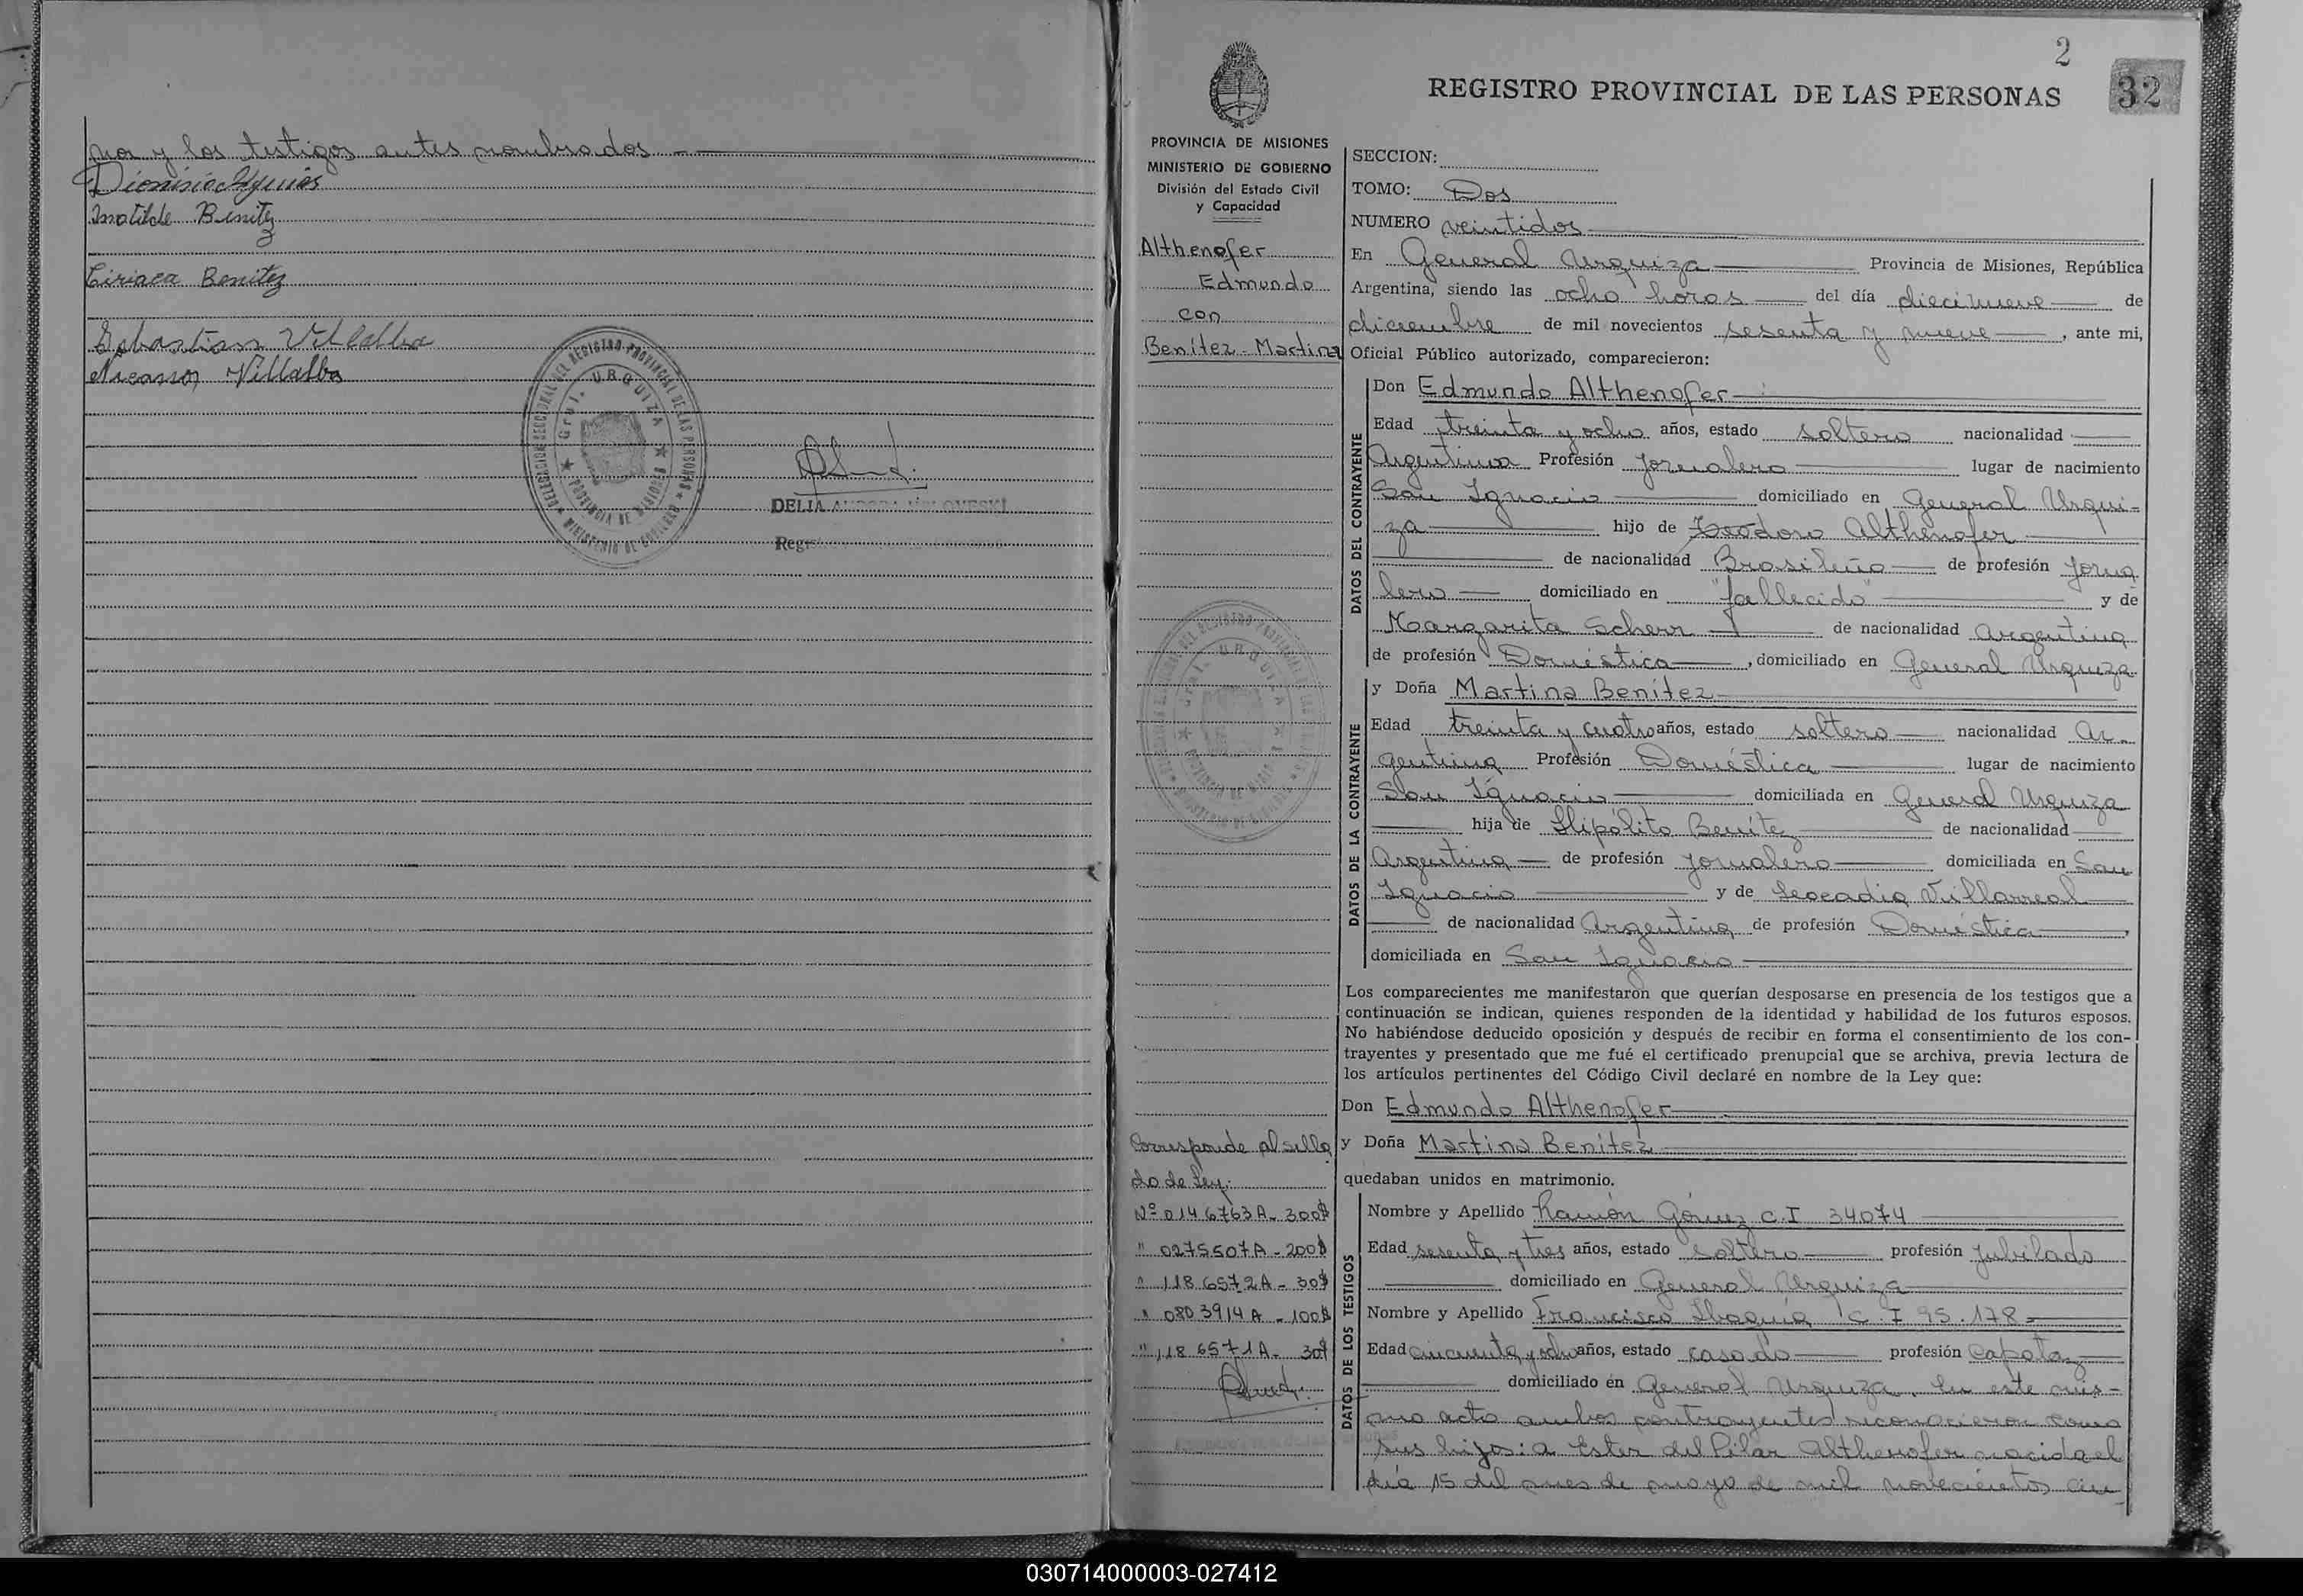 por y los testigos antes nombrados
Dionisio Aquino
Matilde Benitez
Ciriaca Benitez
Sebastian Villalba
Nicanor Villalba
DELEGACION SECCIONAL DEL REGISTRO PROVINCIAL DE LAS PERSONAS
Gral. URQUIZA
PROVINCIA DE MISIONES
MINISTERIO DE GOBIERNO
DELIA
2
32
REGISTRO PROVINCIAL DE LAS PERSONAS
PROVINCIA DE MISIONES
MINISTERIO DE GOBIERNO
División del Estado Civil
y Capacidad
Althenofer
Edmundo
con
Benítez - Martina
SECCION:
TOMO: Dos
NUMERO veintidos
En General Urquiza Provincia de Misiones, República
Argentina, siendo las ocho horas del día diecinueve de
diciembre de mil novecientos sesenta y nueve, ante mi,
Oficial Público autorizado, comparecieron:
DATOS DEL CONTRAYENTE
Don Edmundo Althenofer
Edad treinta y ocho años, estado soltero nacionalidad
Argentina Profesión Jornalero lugar de nacimiento
San Ignacio domiciliado en General Urqui-
za hijo de Teodoro Althenofer
de nacionalidad Brasileño de profesión Jorna
lero domiciliado en "fallecido" y de
Margarita Scherr de nacionalidad Argentina
de profesión Doméstica, domiciliado en General Urquiza
DATOS DE LA CONTRAYENTE
y Doña Martina Benítez
Edad treinta y cuatro años, estado soltera nacionalidad Ar-
gentina Profesión Doméstica lugar de nacimiento
San Ignacio domiciliada en General Urquiza
hija de Hipólito Benítez de nacionalidad
Argentina de profesión Jornalero domiciliada en San
Ignacio y de Leocadia Villarreal
de nacionalidad Argentina de profesión Doméstica,
domiciliada en San Ignacio
Los comparecientes me manifestaron que querían desposarse en presencia de los testigos que a
continuación se indican, quienes responden de la identidad y habilidad de los futuros esposos.
No habiéndose deducido oposición y después de recibir en forma el consentimiento de los con-
trayentes y presentado que me fué el certificado prenupcial que se archiva, previa lectura de
los artículos pertinentes del Código Civil declaré en nombre de la Ley que:
Don Edmundo Althenofer
y Doña Martina Benítez
quedaban unidos en matrimonio.
Corresponde al sella
do de ley:
Nº 0146763A - 300$
" 0275507A - 200$
" 1186572A - 30$
" 0803914A - 100$
" 1186571A - 30$
DATOS DE LOS TESTIGOS
Nombre y Apellido Ramón Gómez C.I 34074
Edad sesenta y tres años, estado soltero profesión Jubilado
domiciliado en General Urquiza
Nombre y Apellido Francisco C.I 95.178
Edad cincuenta y ocho años, estado casado profesión Capataz
domiciliado en General Urquiza. En este mis-
mo acto ambos contrayentes reconocieron como
sus hijos: a Ester del Pilar Althenofer nacida el
día 15 del mes de mayo de mil novecientos cin
030714000003-027412